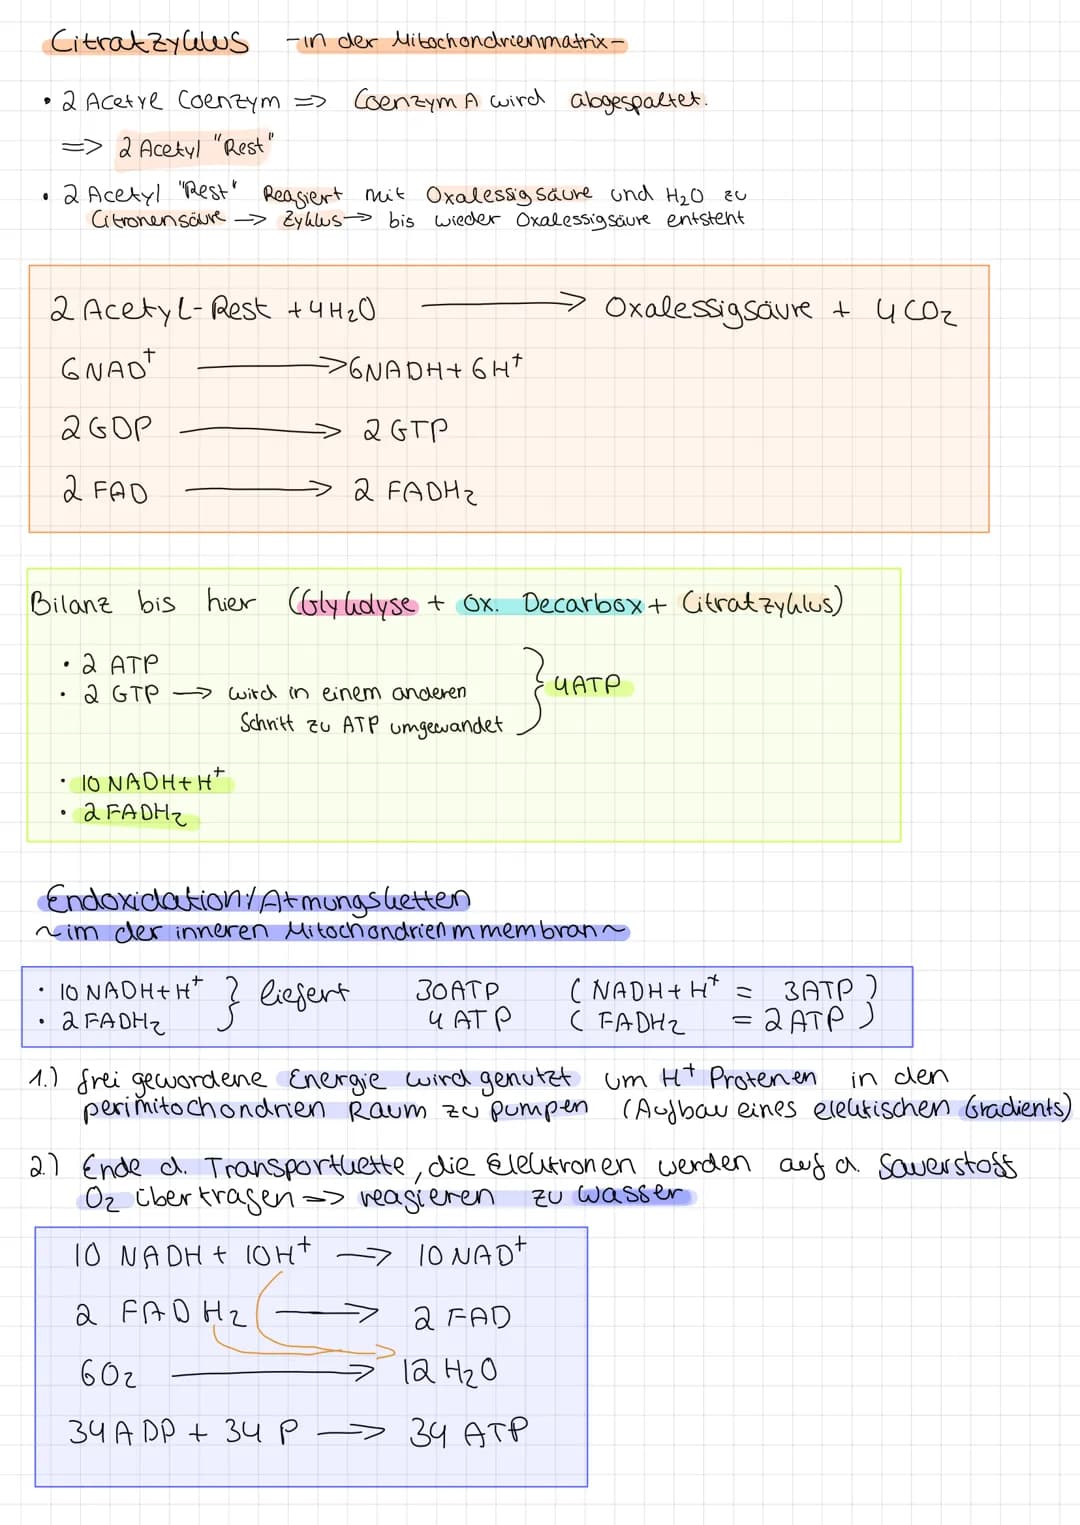 Citratzyklus -in der Mitochondrienmatrix-
• 2 Acetyl Coenzym => Coenzym A wird abgespaltet.
=> 2 Acetyl "Rest"
• 2 Acetyl "Rest" Reagiert mit Oxalessigsäure und H₂O zu
Citronensäure → Zyklus → bis wieder Oxalessigsäure entsteht
2 Acetyl-Rest + 4H₂O → Oxalessigsäure + 4 CO₂
6 NAD⁺ → 6NADH + 6H⁺
2 GDP → 2 GTP
2 FAD → 2 FADH₂
Bilanz bis hier (Glykolyse + Ox. Decarbox + Citratzyklus)
• 2 ATP
• 2 GTP → wird in einem anderen
Schritt zu ATP umgewandet
} 4ATP
• 10 NADH+H⁺
• 2 FADH₂
Endoxidation/Atmungsketten
~im der inneren Mitochondrienmmembran~
• 10 NADH+H⁺ } liefert 30ATP (NADH+H⁺ = 3ATP)
• 2 FADH₂ 4 ATP (FADH₂ = 2 ATP)
1.) frei gewordene Energie wird genutzt um H⁺ Protenen in den
perimitochondrien Raum zu pumpen (Aufbau eines elektischen Gradients)
2.) Ende d. Transportkette, die Elektronen werden auf d. Sauerstoff
O₂ übertragen => reagieren zu Wasser
10 NADH + 10H⁺ → 10 NAD⁺
2 FADH₂ → 2 FAD
6O₂ → 12 H₂O
34 ADP + 34 P → 34 ATP